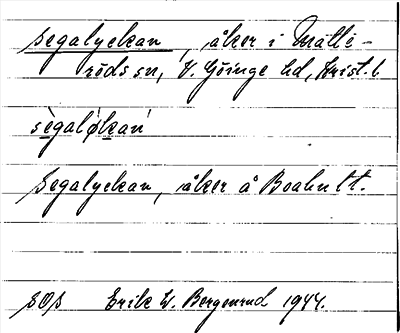 Segalyckan, åker i Matte-
röds sn, V. Göinge hd, Krist. l
sègalǿkan
Segalyckan, åker å Boahult.
SOS Erik W. Bergenrud 1944.